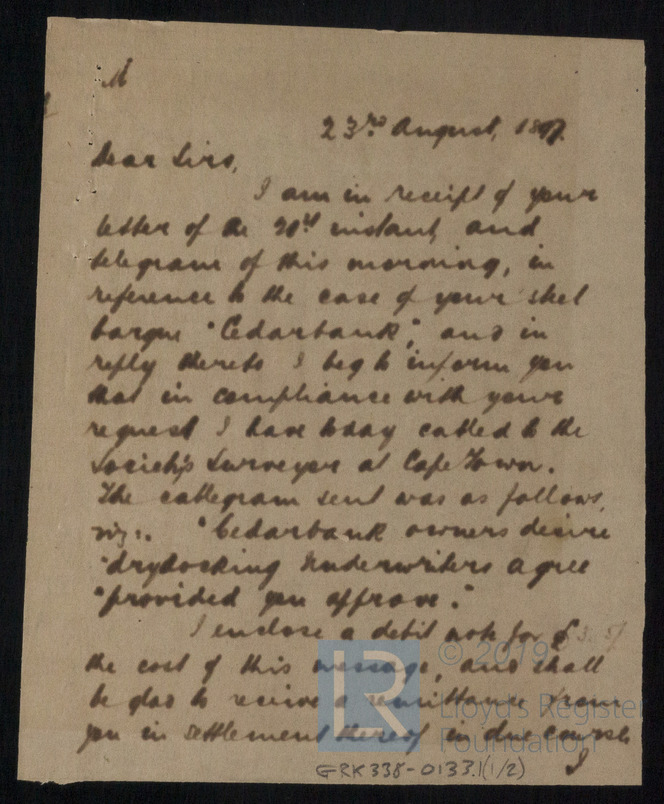 23rd August, 1897.
Dear Sirs,
I am in receipt of your
letter of the 20th instant, and
telegram of this morning, in
reference to the case of your steel
barque "Cedarbank", and in
reply thereto I beg to inform you
that in compliance with your
request I have today cabled to the
Society's Surveyor at Cape Town.
The cablegram sent was as follows,
viz:. "Cedarbank owners desire
"drydocking Underwriters agree
"provided you approve."
I enclose a debit note for £3.5/
the cost of this message, and shall
be glad to receive a remittance from
you in settlement thereof in due course
I
© 2019
LR
Lloyd's Register
Foundation
GRK338-0133.1(1/2)